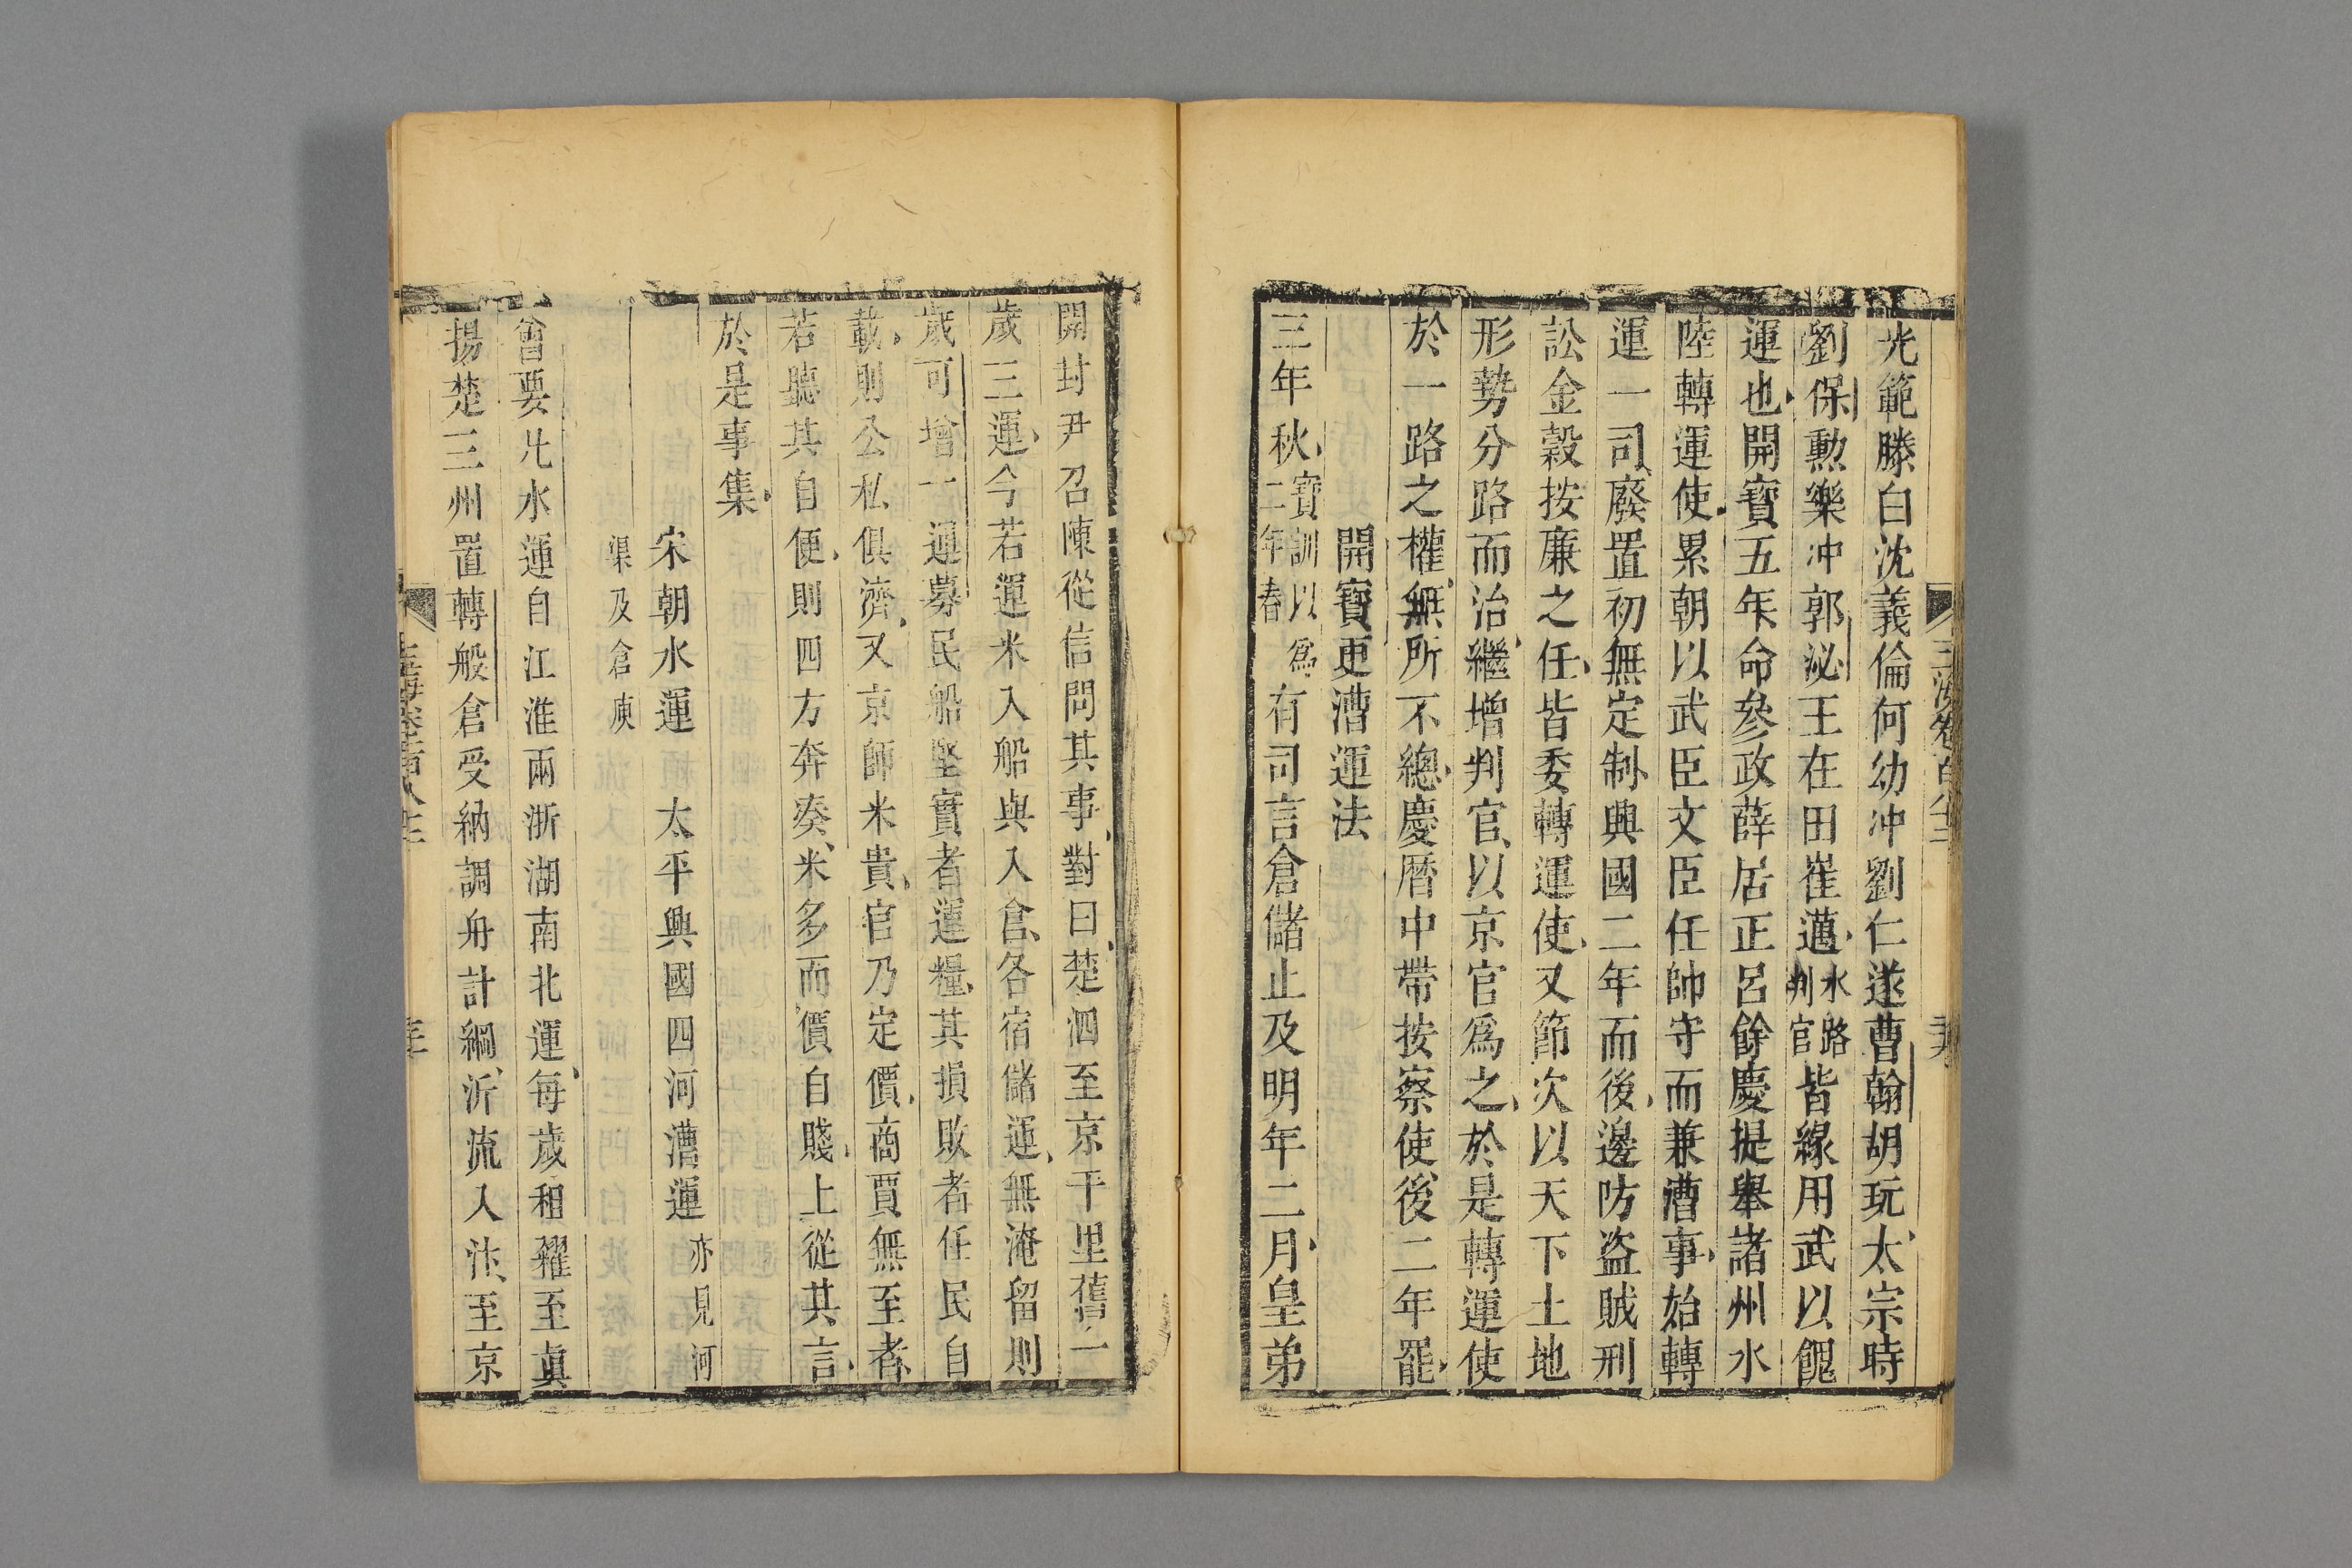 光範滕白沈義倫何幼冲劉仁遂曹翰胡玩太宗時
劉保勲樂冲郭泌王在田崔邁水路判官皆緣用武以餽
運也開寶五年命參政薛居正呂餘慶提舉諸州水
陸轉運使累朝以武臣文臣任帥守而兼漕事始轉
運一司廢置初無定制興國二年而後邊防盗賊刑
訟金穀按廉之任皆委轉運使又節次以天下土地
形勢分路而治繼增判官以京官爲之於是轉運使
於一路之權無所不總慶曆中帶按察使後二年罷
開寶更漕運法
三年秋寶訓以爲二年春有司言倉儲止及明年二月皇弟
開封尹召陳從信問其事對曰楚泗至京千里舊一
歲三運今若運米入船與入倉各宿儲運無淹留則
歲可增一運募民船堅實者運糧其損敗者任民自
載則公私俱濟又京師米貴官乃定價商賈無至者
若聽其自便則四方奔湊米多而價自賤上從其言
於是事集
宋朝水運 太平興國四河漕運亦見河
渠及倉庾
會要凡水運自江淮兩浙湖南北運每歲租糴至眞
揚楚三州置轉般倉受納調舟計綱沂流入汴至京